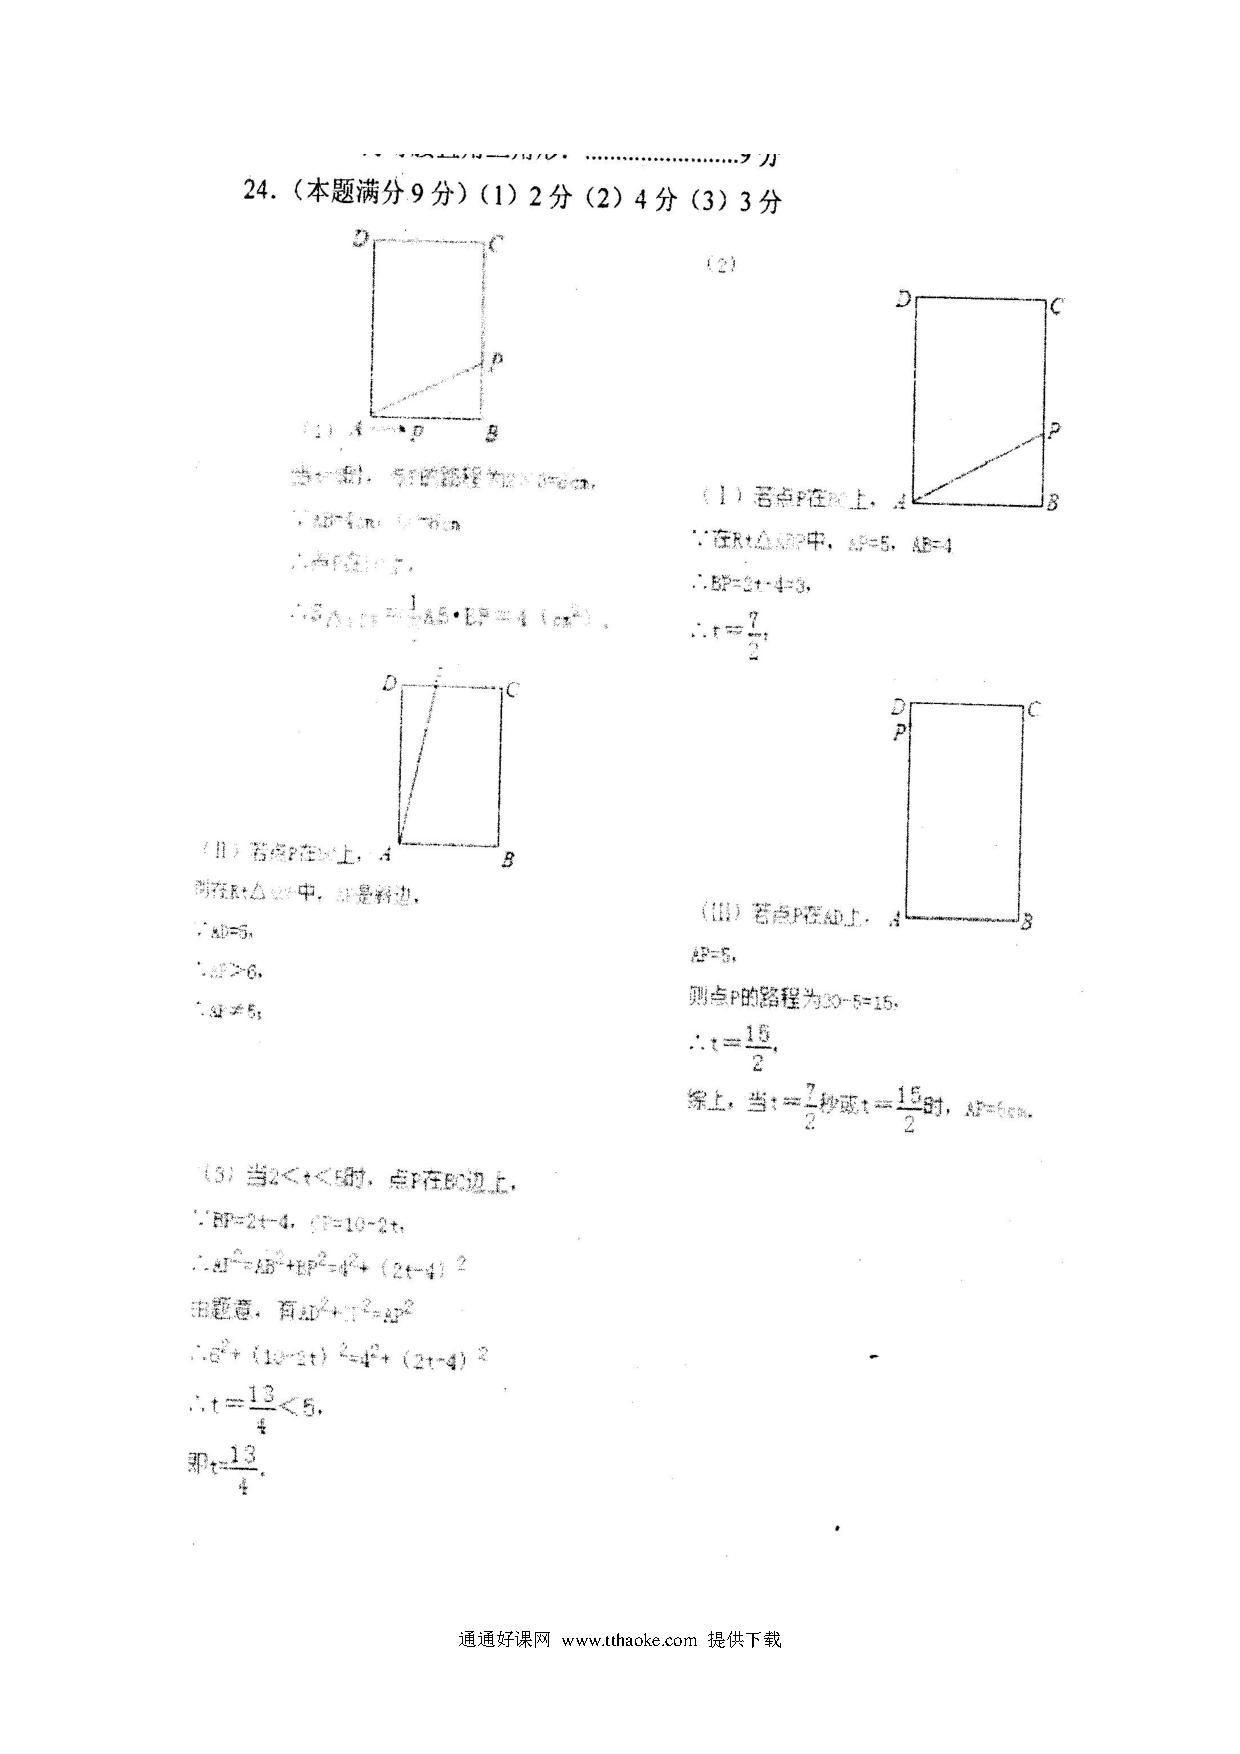 9分
24.（本题满分9分）（1）2分（2）4分（3）3分
D C
P
（1） A P B
∴点P在 上，
（2）
D C
P
（I）若点P在BC上， A B
∵在Rt△ABP中，AP=5，AB=4
∴BP=2t-4=3，
∴t=7/2；
D C
（II）若点P在DC上， A B
则在Rt△ 中，AP是斜边，
∵AD=6，
∴AP>6，
∴AP≠5；
D C
P
（III）若点P在AD上， A B
AP=5，
则点P的路程为20-5=15，
∴t=15/2，
综上，当t=7/2秒或t=15/2时，AP=5cm．
（3）当2＜t＜5时，点P在BC边上，
∵BP=2t-4，CP=10-2t，
∴AP²=AB²+BP²=4²+（2t-4）²
由题意，有AD²+CP²=AP²
∴6²+（10-2t）²=4²+（2t-4）²
∴t=13/4＜5，
即t=13/4．
通通好课网 www.tthaoke.com 提供下载